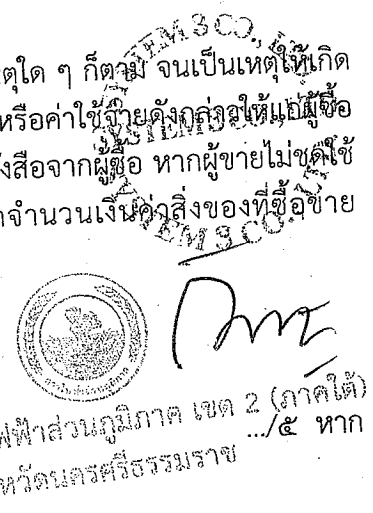 ตุใด ๆ ก็ตาม จนเป็นเหตุให้เกิด
หรือค่าใช้จ่ายดังกล่าวให้แก่ผู้ซื้อ
ังสือจากผู้ซื้อ หากผู้ขายไม่ชดใช้
าจำนวนเงินค่าสิ่งของที่ซื้อขาย
ฟฟ้าส่วนภูมิภาค เขต 2 (ภาคใต้)
.../๕ หาก
หวัดนครศรีธรรมราช